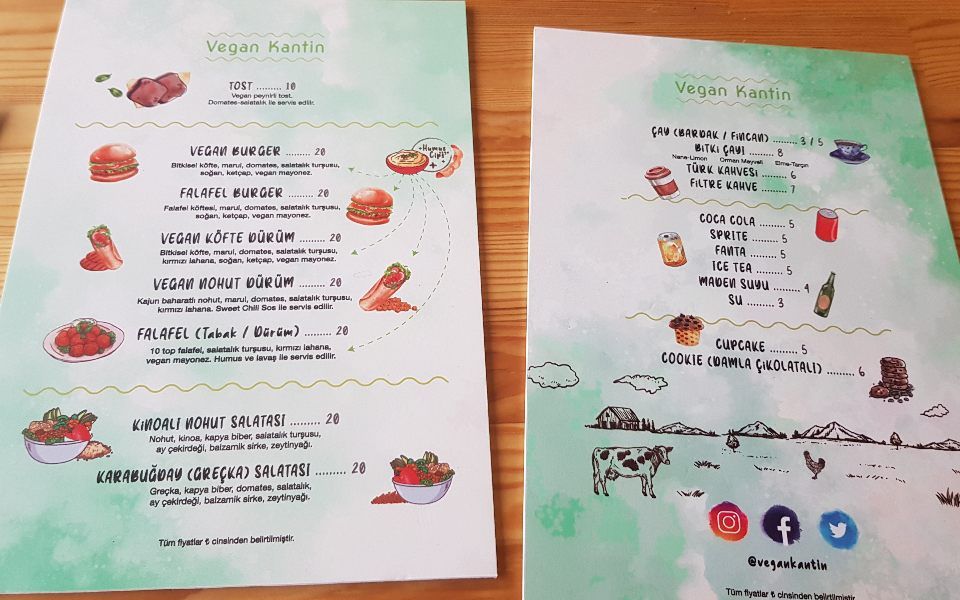 Vegan Kantin
TOST ......... 10
Vegan peynirli tost.
Domates-salatalık ile servis edilir.
VEGAN BURGER ......... 20
Bitkisel köfte, marul, domates, salatalık turşusu,
soğan, ketçap, vegan mayonez.
+Humus
+
FALAFEL BURGER ......... 20
Falafel köftesi, marul, domates, salatalık turşusu,
soğan, ketçap, vegan mayonez.
VEGAN KÖFTE DÜRÜM ......... 20
Bitkisel köfte, marul, domates, salatalık turşusu,
kırmızı lahana, soğan, ketçap, vegan mayonez.
VEGAN NOHUT DÜRÜM ......... 20
Kajun baharatlı nohut, marul, domates, salatalık turşusu,
kırmızı lahana. Sweet Chili Sos ile servis edilir.
FALAFEL (Tabak / Dürüm) ......... 20
10 top falafel, salatalık turşusu, kırmızı lahana,
vegan mayonez. Humus ve lavaş ile servis edilir.
KİNOALI NOHUT SALATASI ......... 20
Nohut, kinoa, kapya biber, salatalık turşusu,
ay çekirdeği, balzamik sirke, zeytinyağı.
KARABUĞDAY (GREÇKA) SALATASI ......... 20
Greçka, kapya biber, domates, salatalık,
ay çekirdeği, balzamik sirke, zeytinyağı.
Tüm fiyatlar ₺ cinsinden belirtilmiştir.
Vegan Kantin
ÇAY (BARDAK / FİNCAN) ......... 3 / 5
BİTKİ ÇAYI ......... 8
Nane-Limon Orman Meyveli Elma-Tarçın
TÜRK KAHVESİ ......... 6
FİLTRE KAHVE ......... 7
COCA COLA ......... 5
SPRITE ......... 5
FANTA ......... 5
ICE TEA ......... 5
MADEN SUYU ......... 4
SU ......... 3
CUPCAKE ......... 5
COOKIE (DAMLA ÇİKOLATALI) ......... 6
@vegankantin
Tüm fiyatlar ₺ cinsinden belirtilmiştir.